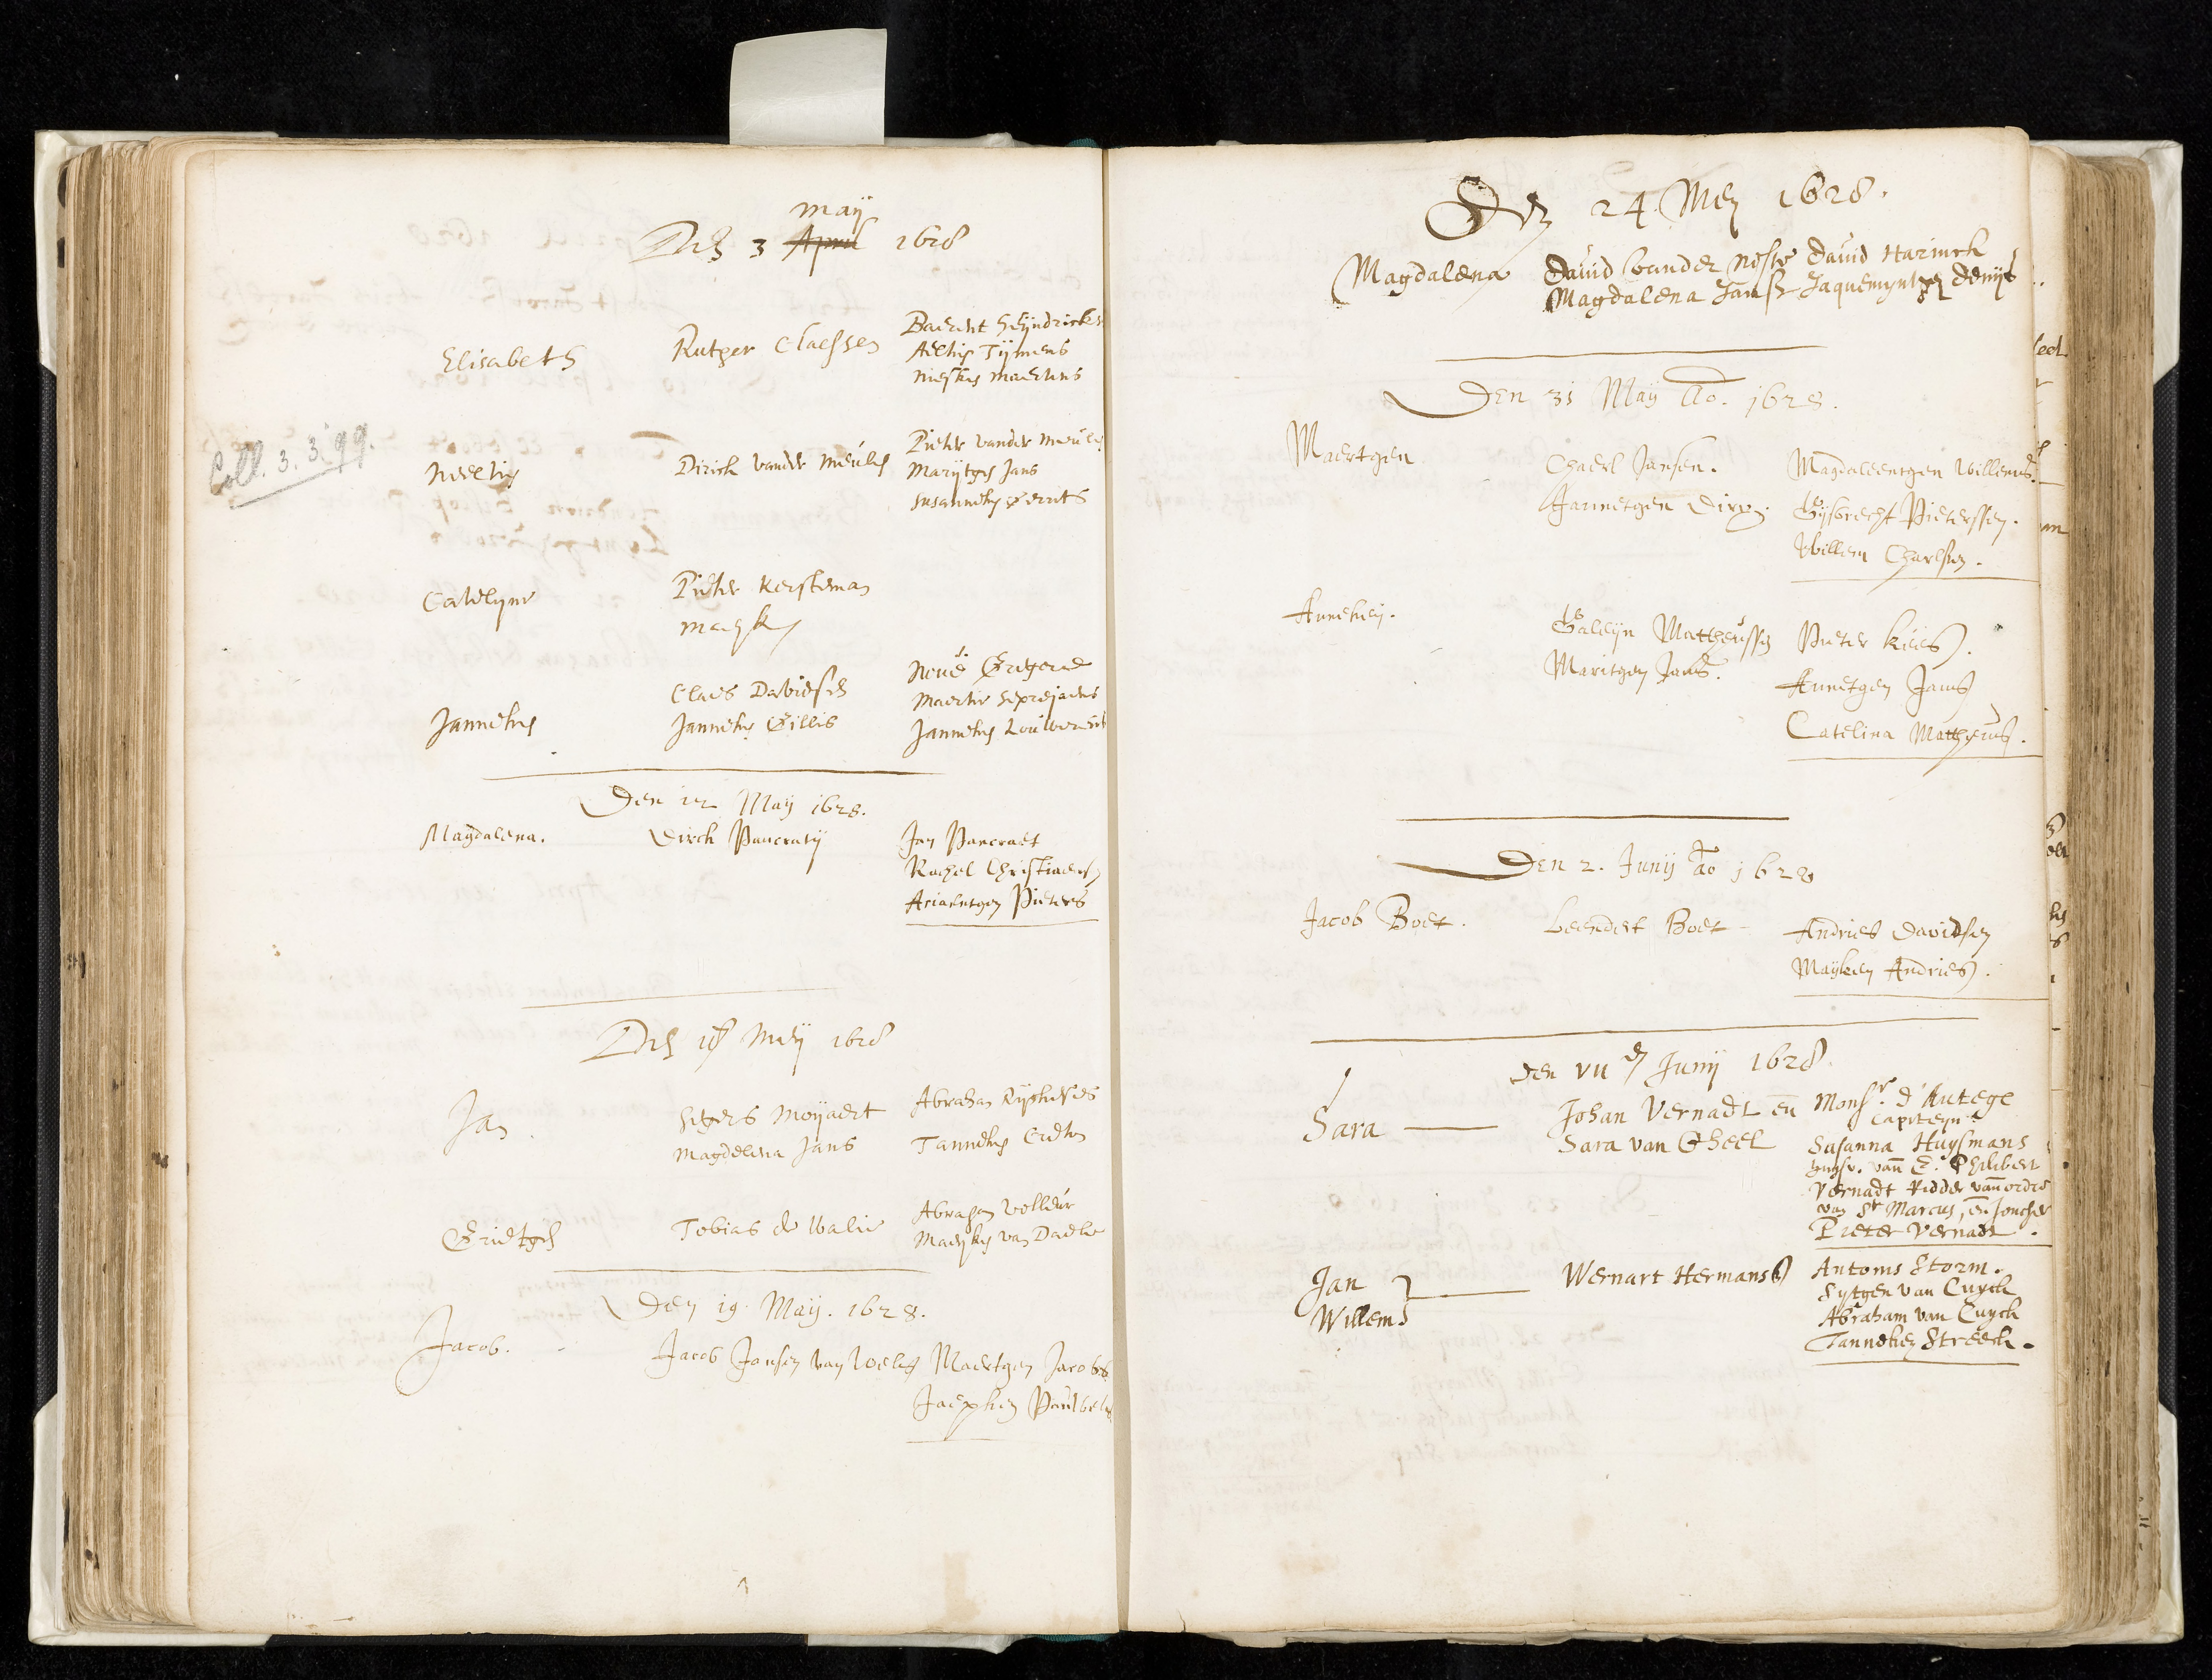 may
Den 3 April 1628
Elisabeth
Rutger Claessen
Baerent Heyndricks
Aeltis Tijmens
Nieskis Maertens
Coll. 3. 3. 99.
Neeltis
Dirick vander Meulen
Pieter vander Meule
Marijtgis Jans
Susannetis Gerrits
Catelyne
Pieter Kersteman
Mayke
Jannetis
Claes Davidsen
Jannetis Gillis
Maertis
Jannetis Louwerens
Den 12 May 1628.
Magdalena.
Dirck Pancratij
Jan Pancraet
Rachel Christiaens
Ariaentgen Pieters
Den 17 Meij 1628
Jan
Segers Moyaert
Magdelena Jans
Abraham
Tannetis
Grietgen
Tobias de Walie
Abraham Volleur
Maeykis van Daele
Den 19. May. 1628.
Jacob.
Jacob Jansen van Maertgen Jacobs
Jaepken Pauwels
Den 24. Mey 1628.
Magdalena David vander Neste David Harinck
Magdalena Jansz Jaquemyntgen Denijs
Den 31 May Ao. 1628.
Maertgen
Chaerl Jansen.
Jannetgen Dirx.
Magdaleentgen Willems.
Gijsbrecht Pieterssen.
Willem Charlsen.
Anneken.
Galeyn Mattheussen
Maritgen Jans.
Pieter Kees.
Annetgen Jans
Catelina Mattheus.
Den 2. Junij Ao 1628
Jacob Boet.
Leendert Boet
Andries Davidsen
Mayken Andries.
den VIIen Junij 1628.
Sara
Johan Vernadt en
Sara van Gheel
Monsr. d'Autege
Capiteyn.
Susanna Huysmans
huysv. van E. Philibert
Vernadt Ridder van ordre
van St Marcus, en Joncher
Pieter Vernadt.
Jan
Willem
Wernart Hermans
Antonis Storm.
Sytgen van Cuyck
Abraham van Cuyck
Tanneken Streeck.